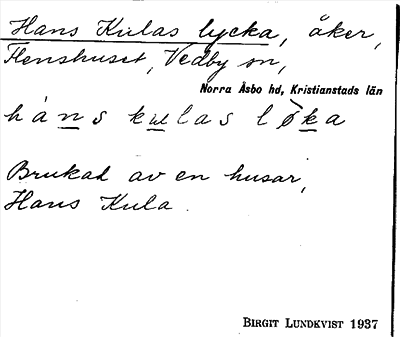 Hans Kulas lycka, åker,
Flenshuset, Vedby sn,
Norra Åsbo hd, Kristianstads län
hans kulas løka
Brukad av en husar,
Hans Kula.
BIRGIT LUNDKVIST 1937